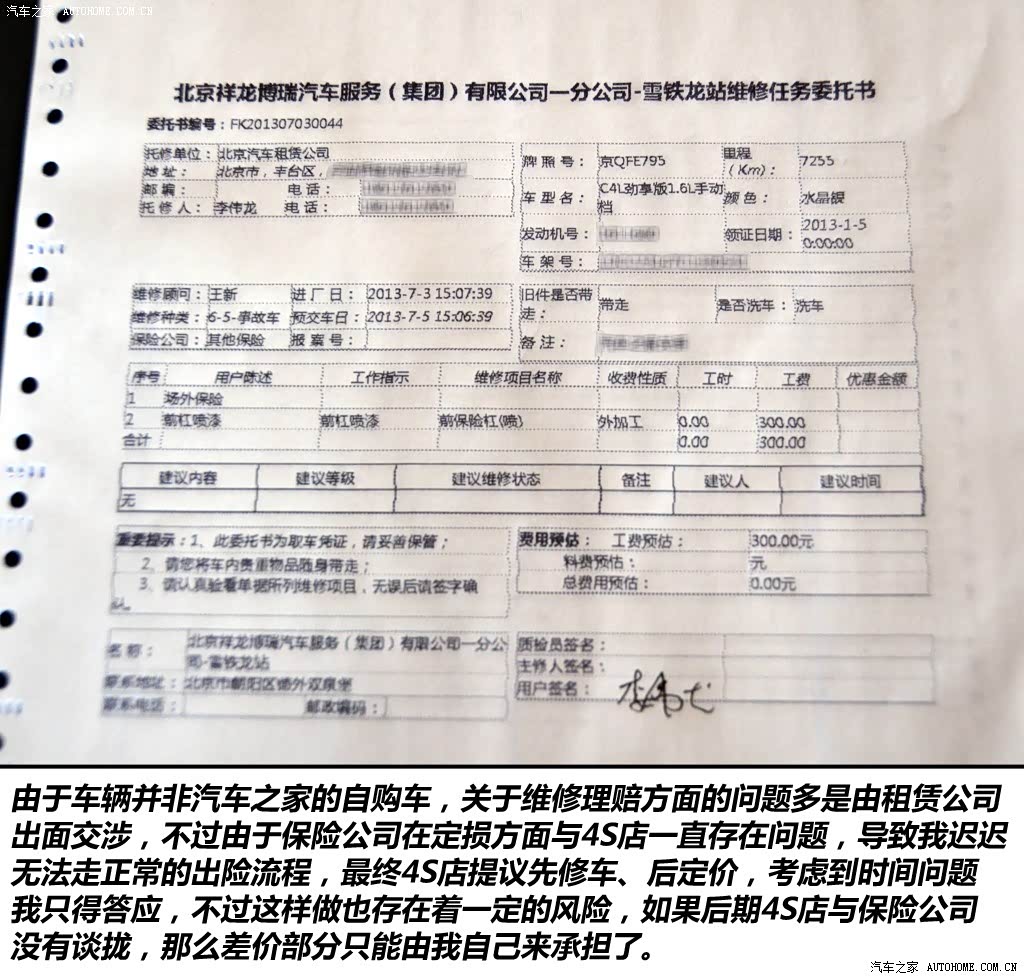 汽车之家 AUTOHOME.COM.CN
北京祥龙博瑞汽车服务（集团）有限公司一分公司-雪铁龙站维修任务委托书
委托书编号：FK201307030044
托修单位： 北京汽车租赁公司
地 址： 北京市，丰台区，
邮 编： 电 话：
托修人： 李伟龙 电 话：
牌 照 号： 京QFE795 里程（Km)： 7255
车 型 名： C4L劲享版1.6L手动档 颜 色： 水晶银
发动机号： 领证日期： 2013-1-5 0:00:00
车 架 号：
维修顾问： 王新 进 厂 日： 2013-7-3 15:07:39
维修种类： 6-5-事故车 预交车日： 2013-7-5 15:06:39
保险公司： 其他保险 报 案 号：
旧件是否带走： 带走 是否洗车： 洗车
备 注：
序号 用户陈述 工作指示 维修项目名称 收费性质 工时 工费 优惠金额
1 场外保险
2 前杠喷漆 前杠喷漆 前保险杠(喷) 外加工 0.00 300.00
合计 0.00 300.00
建议内容 建议等级 建议维修状态 备注 建议人 建议时间
无
重要提示：1、此委托书为取车凭证，请妥善保管；
2、请您将车内贵重物品随身带走；
3、请认真验看单据所列维修项目，无误后请签字确
认。
费用预估： 工费预估： 300.00元
料费预估： 元
总费用预估： 0.00元
名 称： 北京祥龙博瑞汽车服务（集团）有限公司一分公司-雪铁龙站
联系地址： 北京市朝阳区德外双泉堡
联系电话： 邮政编码：
质检员签名：
主修人签名：
用户签名： 李伟龙
由于车辆并非汽车之家的自购车，关于维修理赔方面的问题多是由租赁公司
出面交涉，不过由于保险公司在定损方面与4S店一直存在问题，导致我迟迟
无法走正常的出险流程，最终4S店提议先修车、后定价，考虑到时间问题
我只得答应，不过这样做也存在着一定的风险，如果后期4S店与保险公司
没有谈拢，那么差价部分只能由我自己来承担了。
汽车之家 AUTOHOME.COM.CN